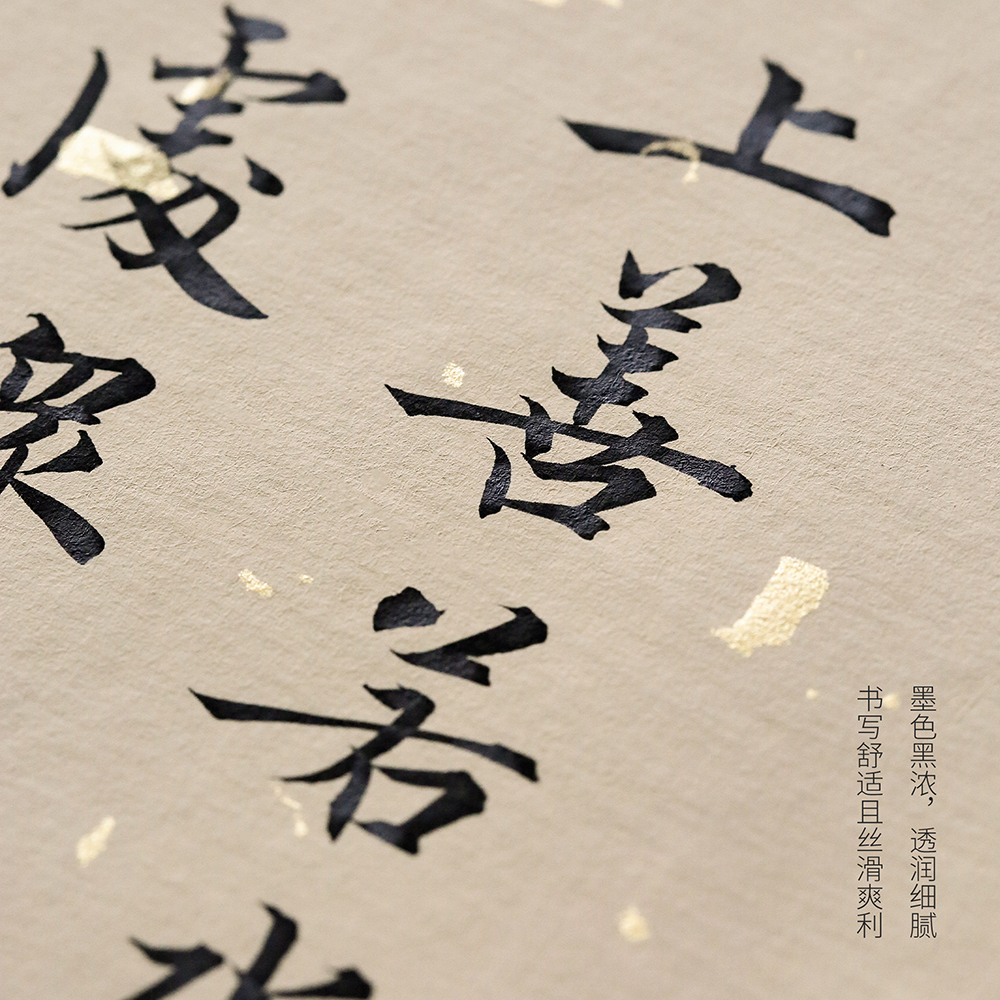 上善若水
處眾
墨色黑浓，透润细腻
书写舒适且丝滑爽利